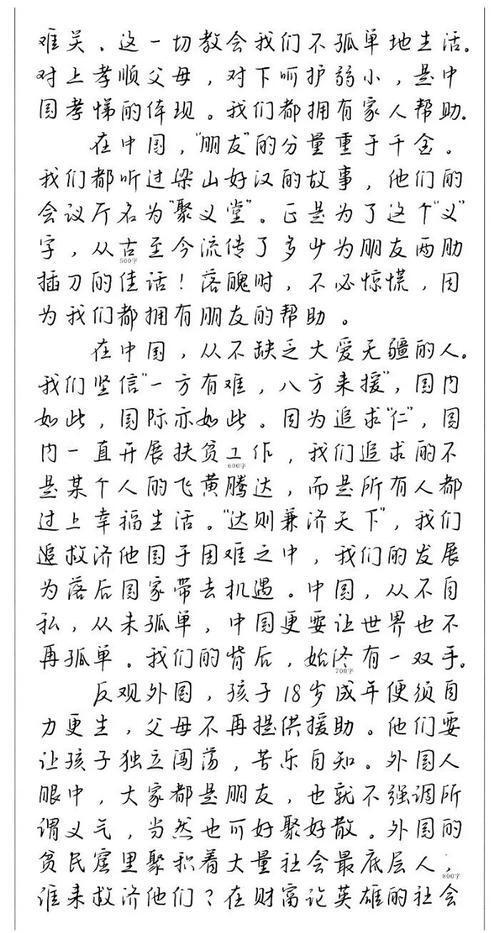 难关。这一切教会我们不孤单地生活。
对上孝顺父母，对下呵护弱小，是中
国孝悌的体现。我们都拥有家人帮助。
在中国，“朋友”的分量重于千金。
我们都听过梁山好汉的故事，他们的
会议厅名为“聚义堂”。正是为了这个“义”
字，从古至今流传了多少为朋友两肋
500字
插刀的佳话！落魄时，不必惊慌，因
为我们都拥有朋友的帮助。
在中国，从不缺乏大爱无疆的人。
我们坚信“一方有难，八方来援”，国内
如此，国际亦如此。因为追求“仁”，国
内一直开展扶贫工作，我们追求的不
600字
是某个人的飞黄腾达，而是所有人都
过上幸福生活。“达则兼济天下”，我们
追救济他国于困难之中，我们的发展
为落后国家带去机遇。中国，从不自
私，从未孤单，中国更要让世界也不
再孤单。我们的背后，始终有一双手。
700字
反观外国，孩子18岁成年便须自
力更生，父母不再提供援助。他们要
让孩子独立闯荡，苦乐自知。外国人
眼中，大家都是朋友，也就不强调所
谓义气，当然也可好聚好散。外国的
贫民窟里聚积着大量社会最底层人，
谁来救济他们？在财富论英雄的社会
800字